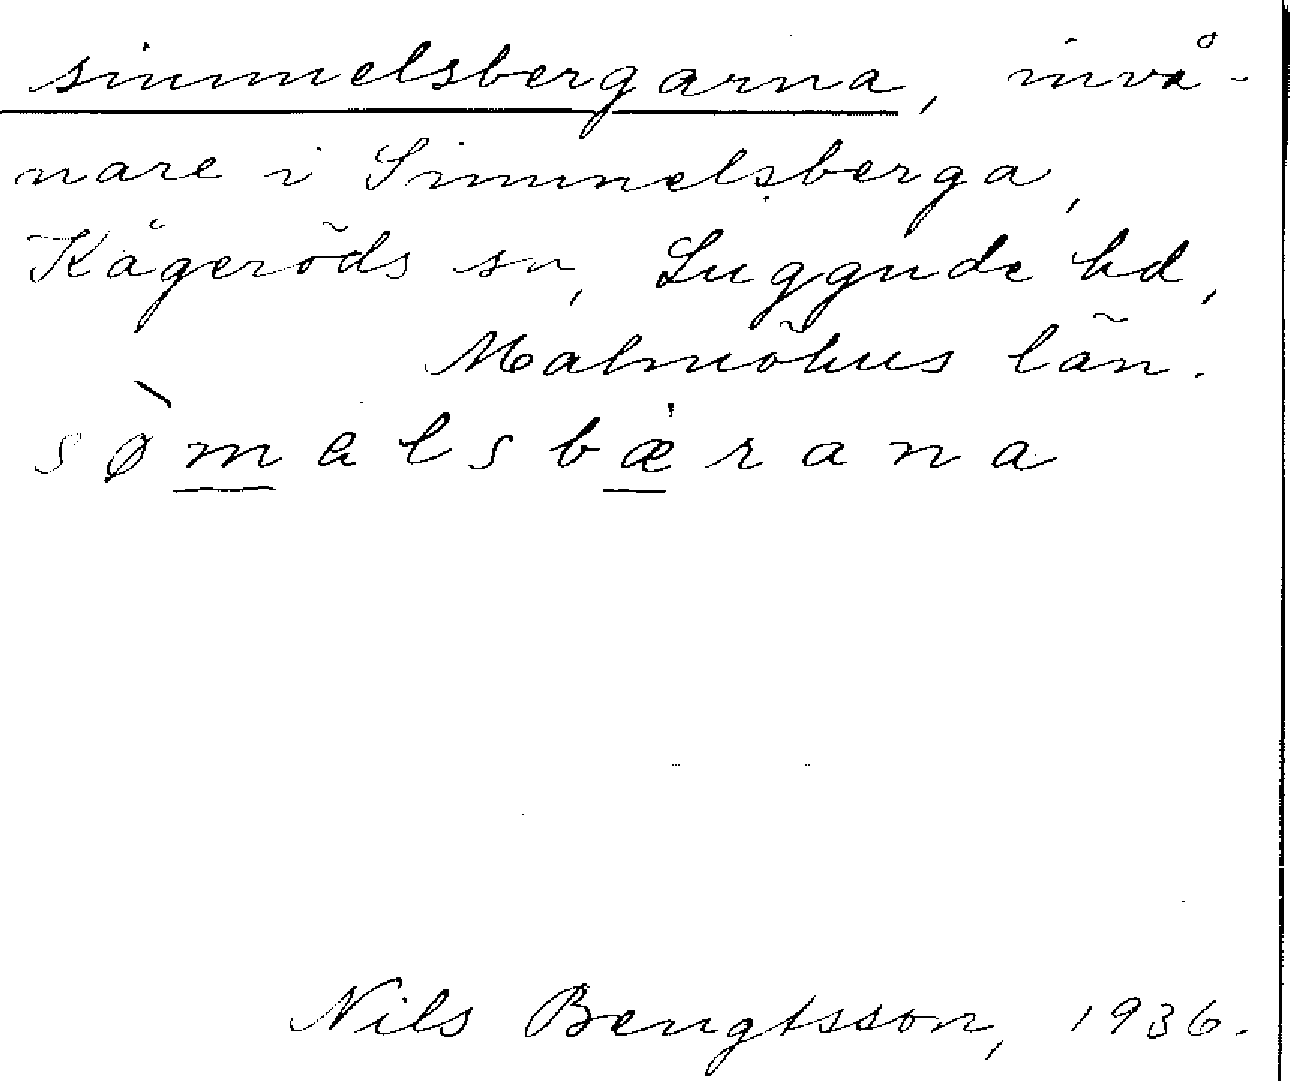 simmelsbergarna, invå-
nare i Simmelsberga,
Kågeröds sn, Luggude hd,
Malmöhus län.
sø̀malsbæ̍rana
Nils Bengtsson, 1936.